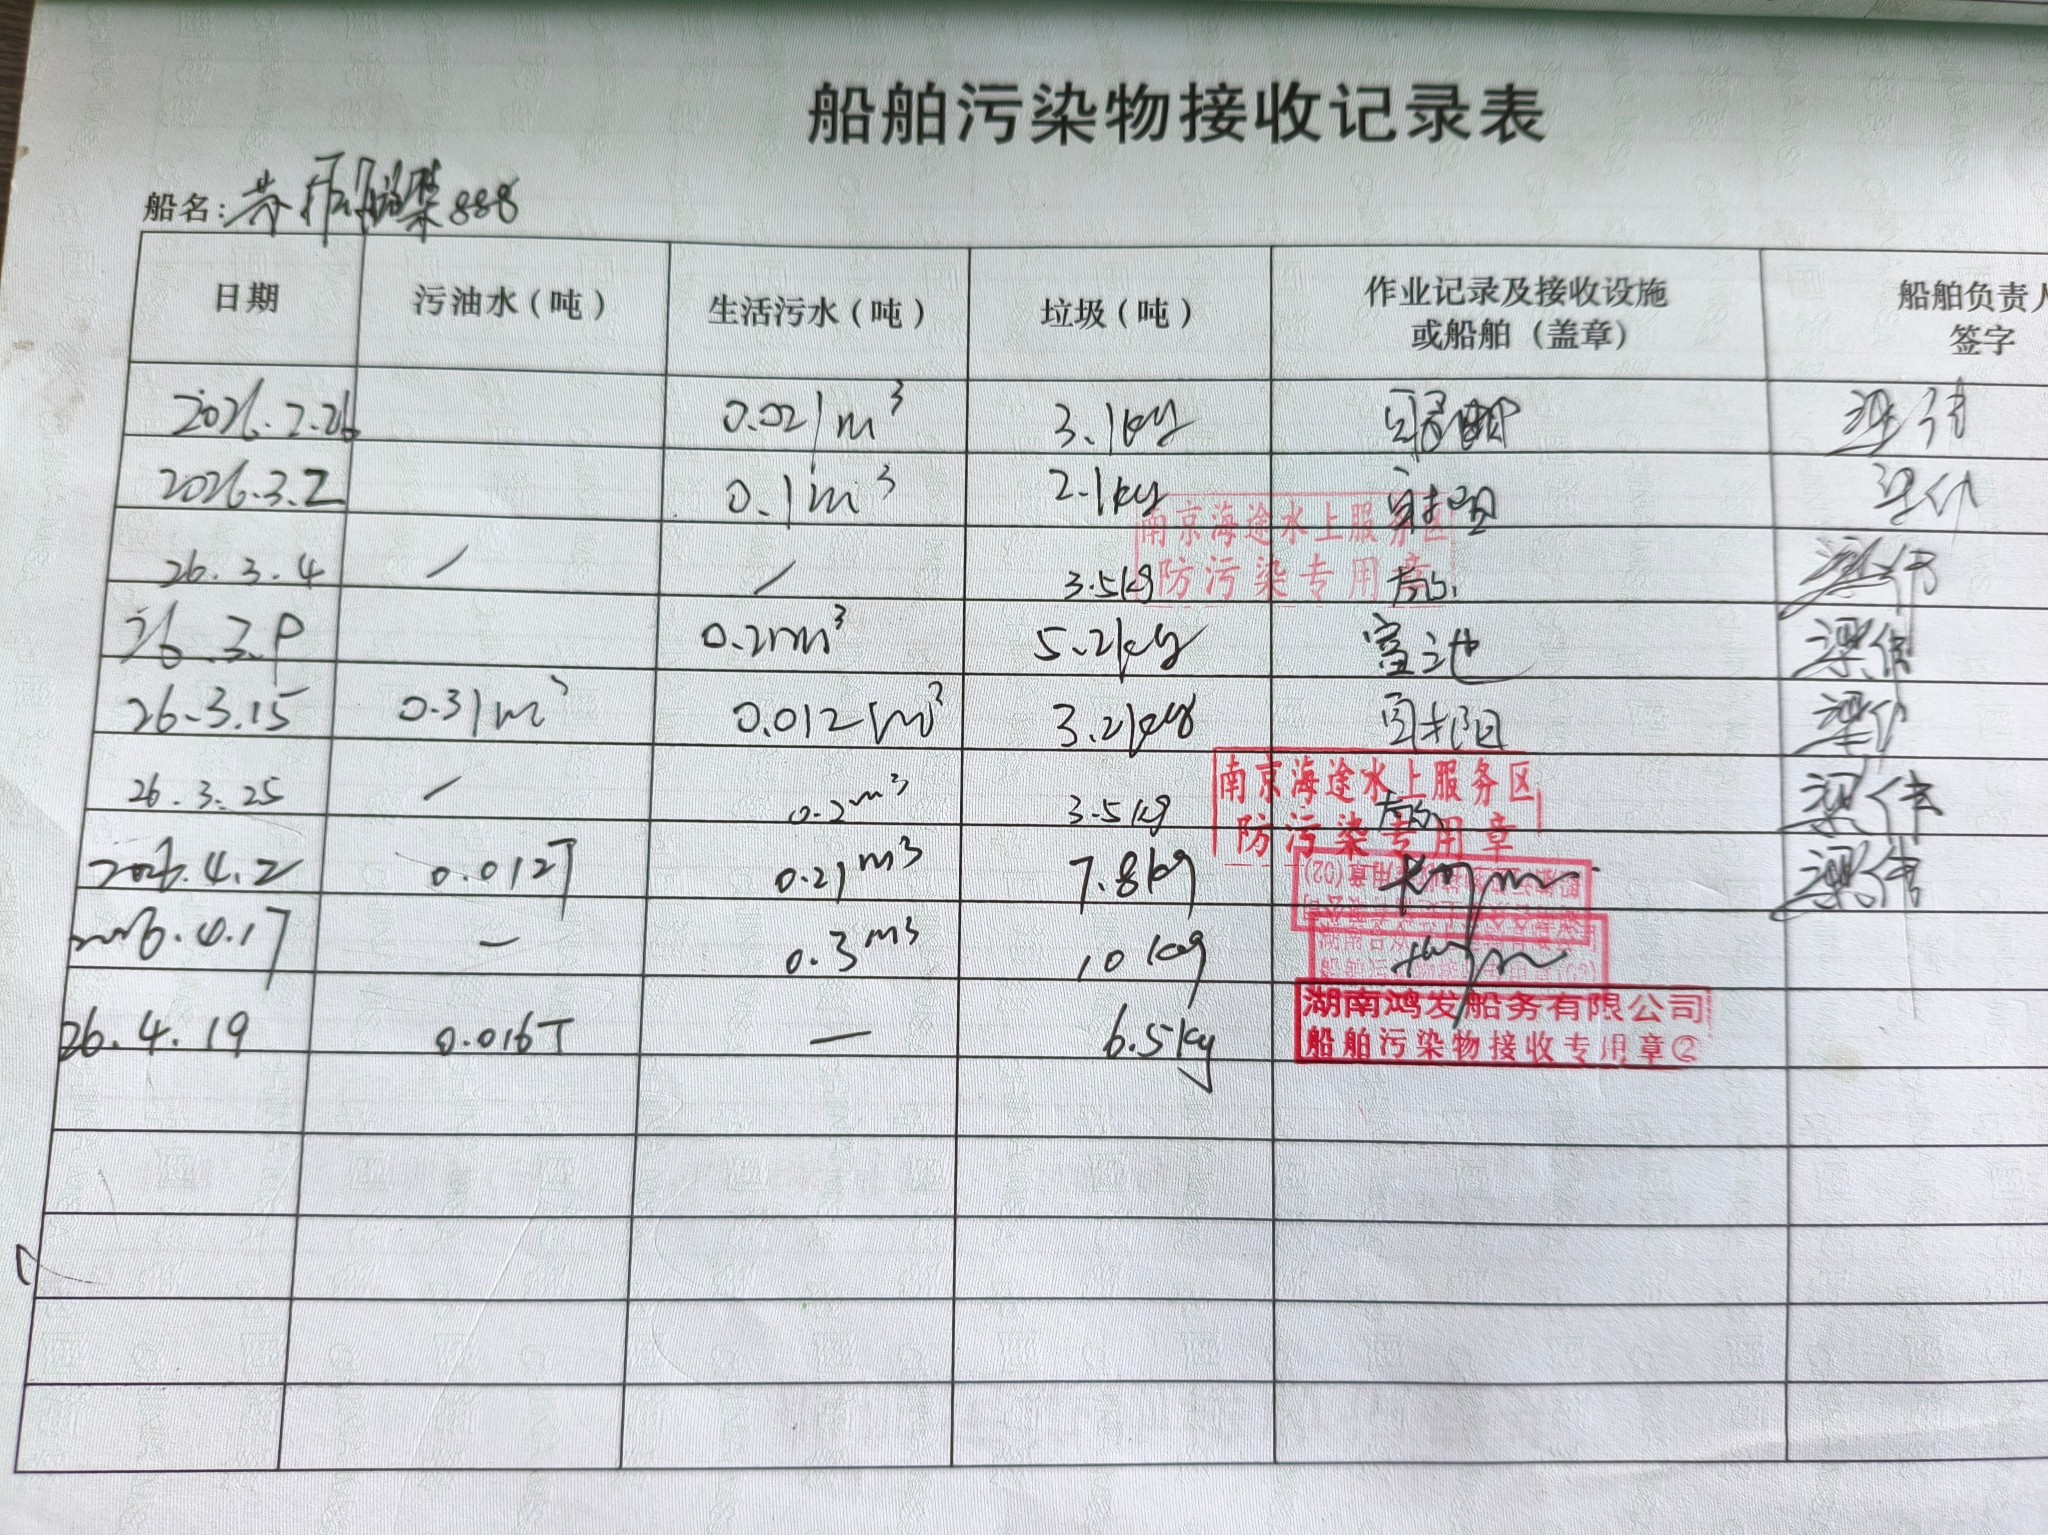 船舶污染物接收记录表
船名: 888
日期 污油水（吨） 生活污水（吨） 垃圾（吨） 作业记录及接收设施或船舶（盖章） 船舶负责人签字
2026.2.26 0.021m³ 3.1kg
2026.3.2 0.1m³ 2.1kg
南京海途水上服务区
防污染专用章
26.3.4 / / 3.5kg
26.3.9 0.21m³ 5.2kg 富池 梁伟
26.3.15 0.31m³ 0.012m³ 3.2kg 梁伟
26.3.25 / 0.2m³ 3.5kg 梁伟
南京海途水上服务区
防污染专用章
2026.4.2 0.012T 0.21m³ 7.8kg 梁伟
2026.4.17 — 0.3m³ 10kg
26.4.19 0.016T — 6.5kg
湖南鸿发船务有限公司
船舶污染物接收专用章②